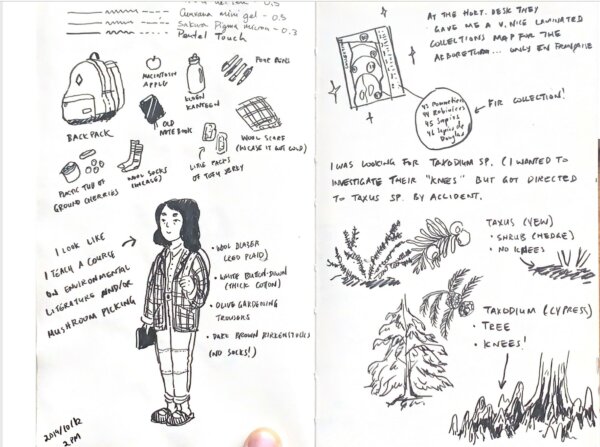 mini gel - 0.5
Sakura Pigma micron - 0.3
Pentel Touch
MACINTOSH
APPLE
KLEAN
KANTEEN
FOUR PENS
BACKPACK
OLD
NOTEBOOK
WOOL SCARF
(IN CASE IT GOT COLD)
PLASTIC TUB OF
GROUND CHERRIES
WOOL SOCKS
LITTLE PACKS
OF TOFU JERKY
I LOOK LIKE
I TEACH A COURSE
ON ENVIRONMENTAL
LITERATURE AND/OR
MUSHROOM PICKING
• WOOL BLAZER
(RED PLAID)
• WHITE BUTTON-DOWN
(THICK COTTON)
• OLIVE GARDENING
TROUSERS
• DARK BROWN BIRKENSTOCKS
(NO SOCKS!)
2019/10/12
2PM
AT THE HORT. DESK THEY
GAVE ME A V. NICE LAMINATED
COLLECTIONS MAP FOR THE
ARBORETUM... ONLY EN FRANÇAISE
43 Pommetiers
44 Robiniers
45 Sapins
46 Sapins de
Douglas
FIR COLLECTION!
I WAS LOOKING FOR TAXODIUM SP. (I WANTED TO
INVESTIGATE THEIR "KNEES" BUT GOT DIRECTED
TO TAXUS SP. BY ACCIDENT.
TAXUS (YEW)
• SHRUB (HEDGE)
• NO KNEES
TAXODIUM (CYPRESS)
• TREE
• KNEES!